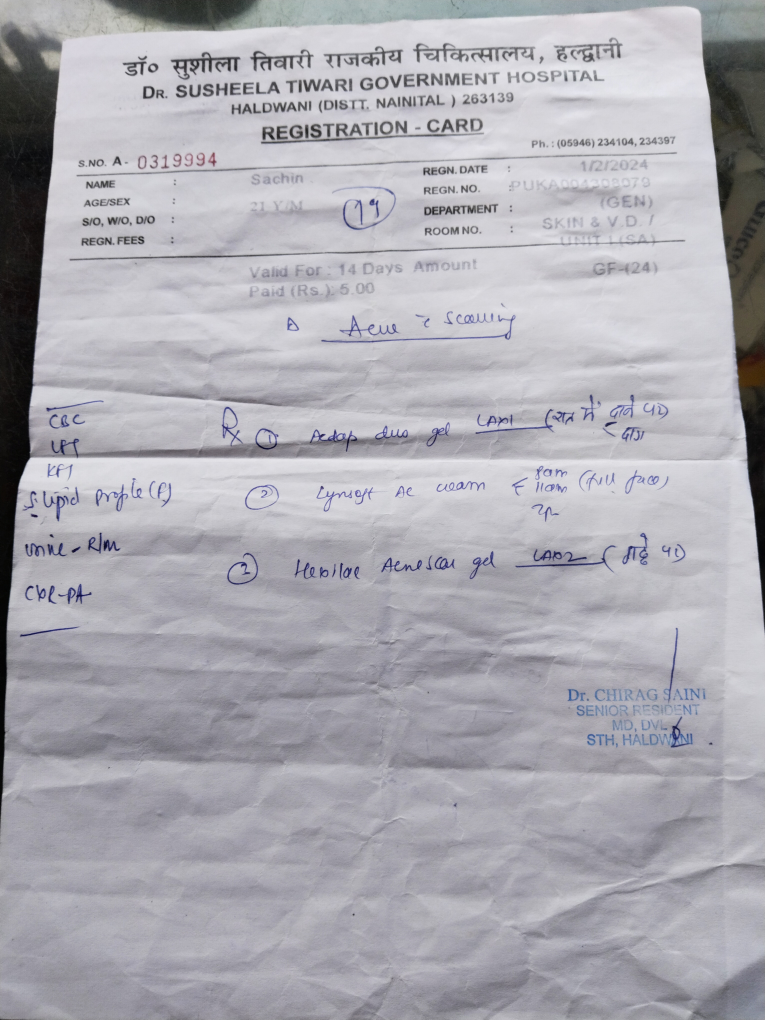 डॉ० सुशीला तिवारी राजकीय चिकित्सालय, हल्द्वानी
DR. SUSHEELA TIWARI GOVERNMENT HOSPITAL
HALDWANI (DISTT. NAINITAL ) 263139
REGISTRATION - CARD
Ph. : (05946) 234104, 234397
S.NO. A- 0319994
NAME : Sachin
REGN. DATE : 1/2/2024
AGE/SEX : 21 Y/M
19
REGN. NO. :
S/O, W/O, D/O :
DEPARTMENT : (GEN)
SKIN & V.D. /
REGN. FEES :
ROOM NO. : UNIT I (SA)
Valid For : 14 Days Amount
GF-(24)
Paid (Rs.): 5.00
Acne c̄ Scarring
CBC
LFT
KFT
S. Lipid profile (F)
urine - R/M
CXR-PA
Rx ① Acdap duo gel LAX1 (रात में दाने पर)
② Ac cream 8am 11am 2p (full face)
③ Acnescar gel LAX2 (गड्ढे पर)
Dr. CHIRAG SAINI
SENIOR RESIDENT
MD, DVL
STH, HALDWANI